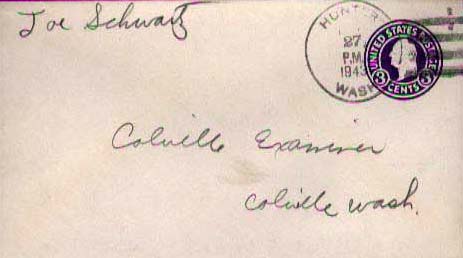 Joe Schwartz
HUNTERS
27
P.M.
1943
WASH
UNITED STATES POSTAGE
3 CENTS 3
Colville Examiner
Colville Wash.